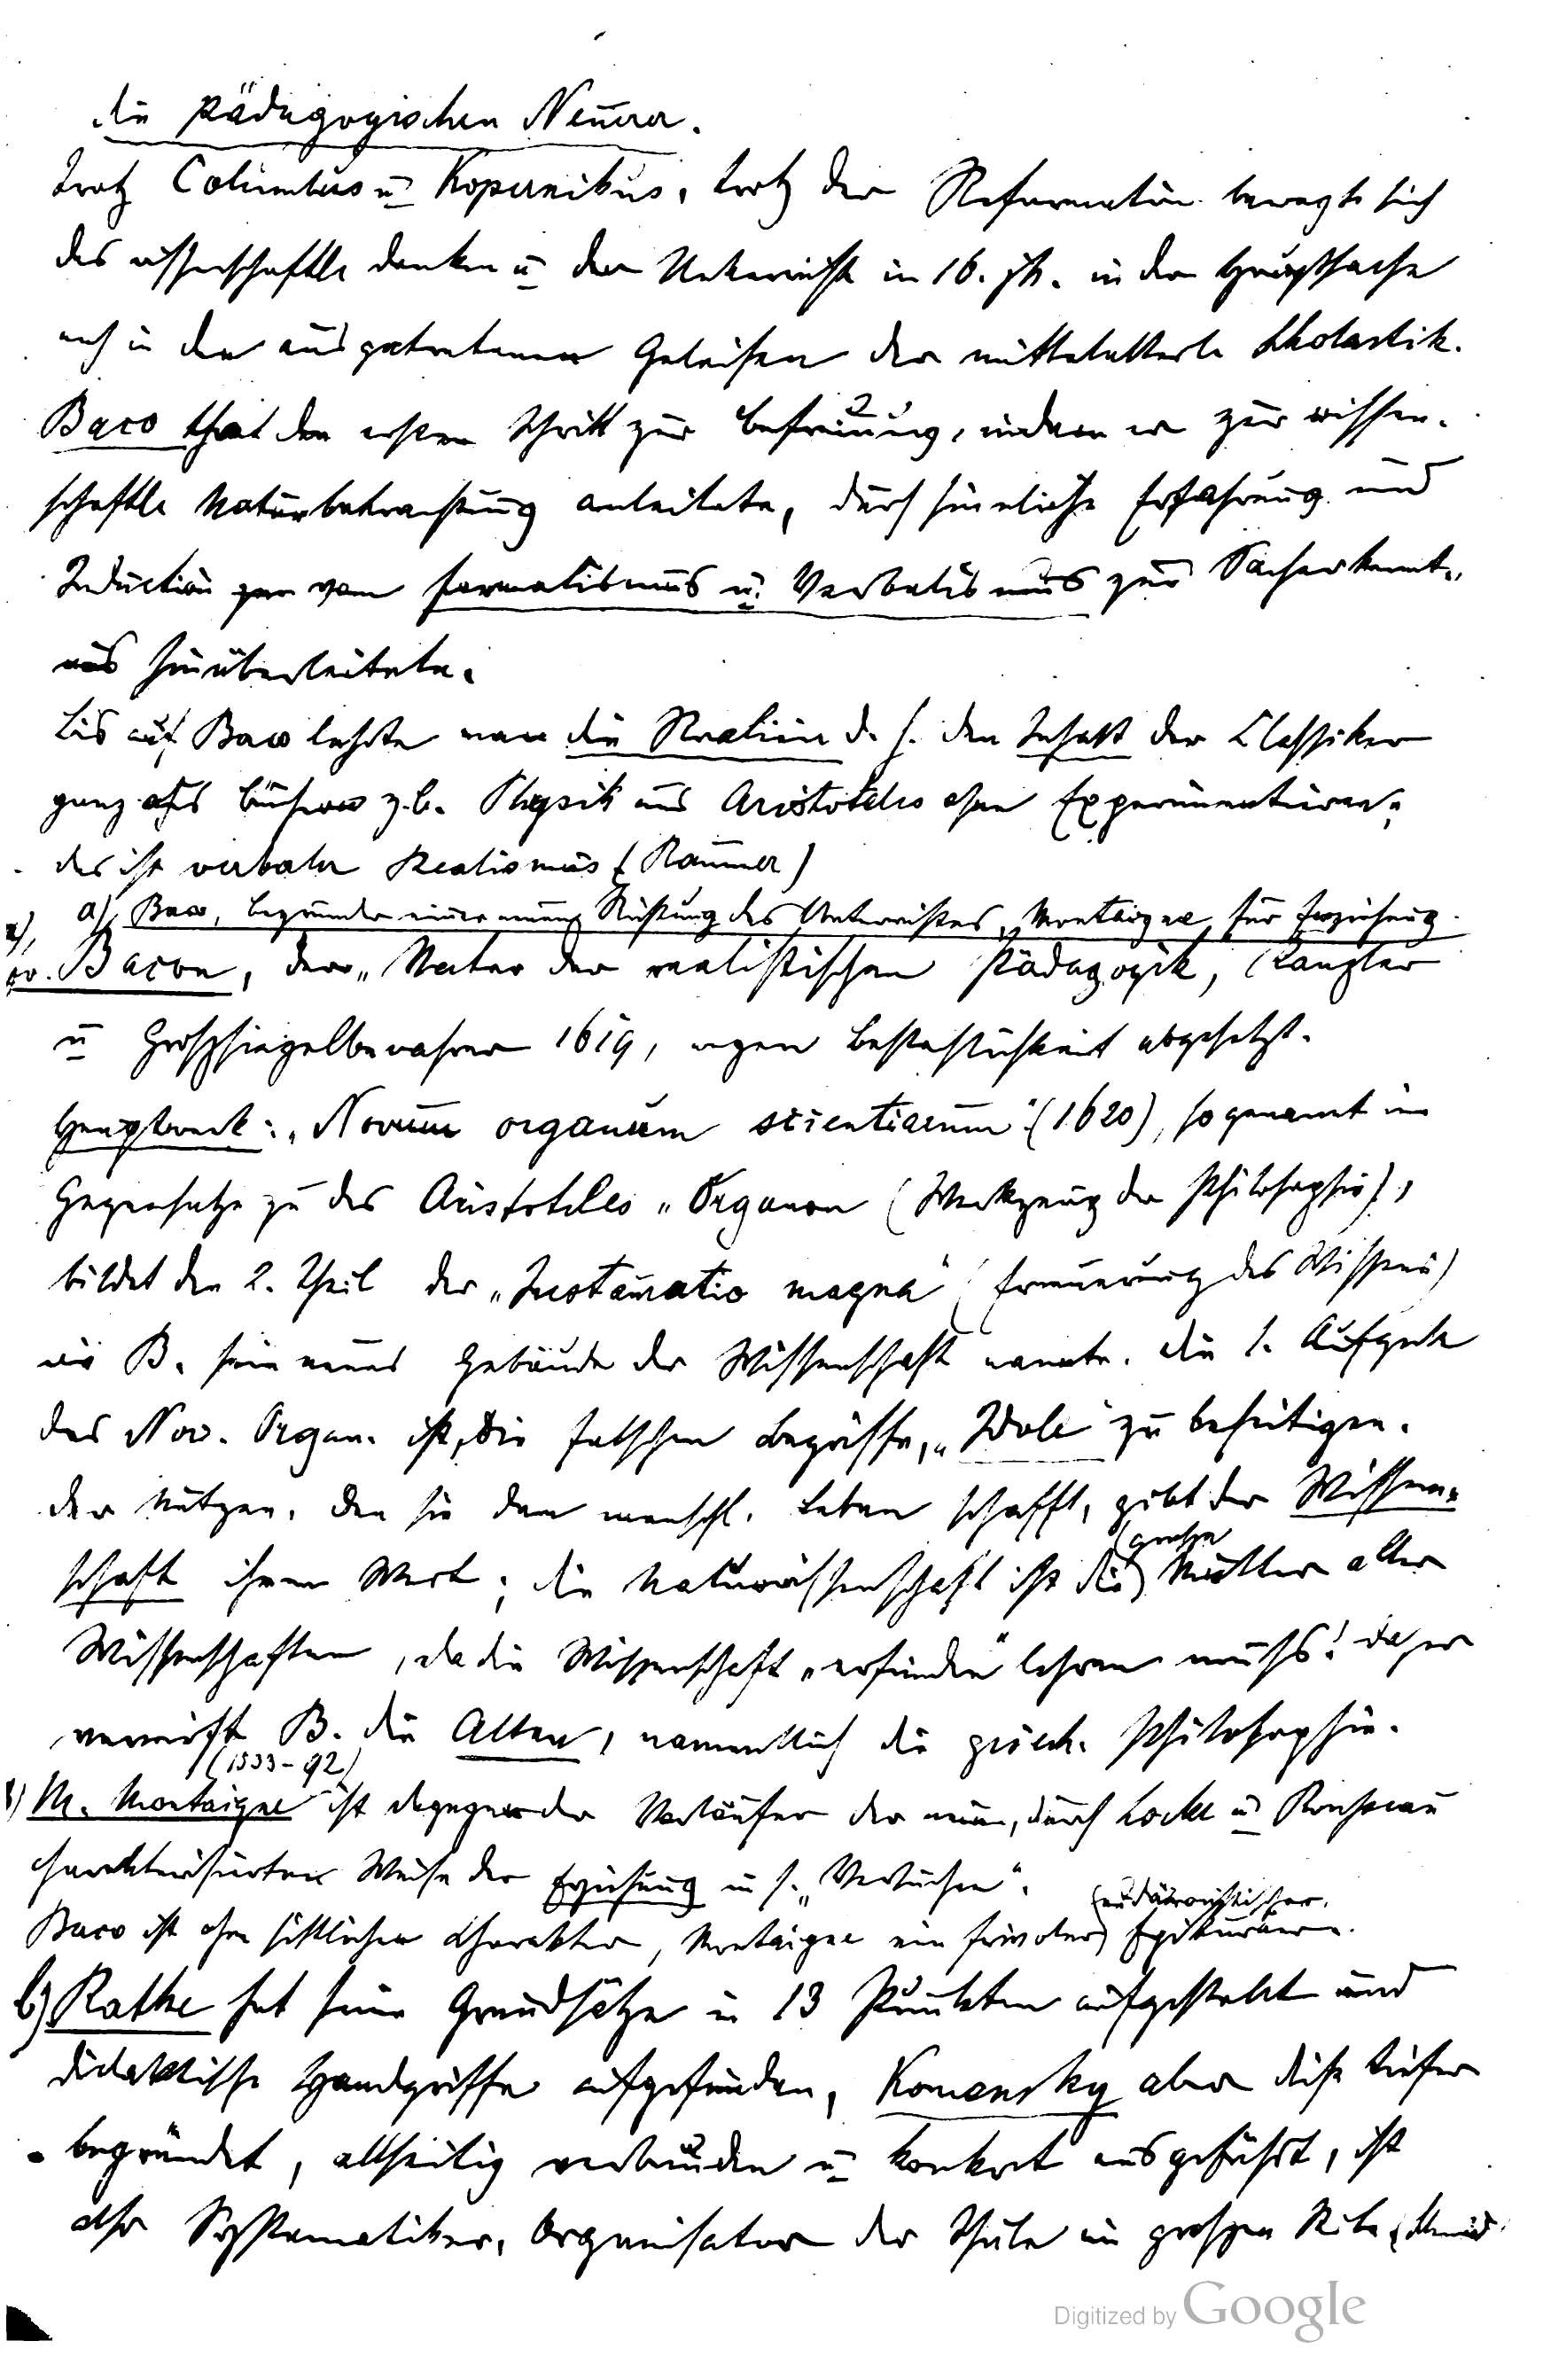 die Pädagogischen Neuerer.
Trotz Columbus u Kopernikus, trotz der Reformation bewegte sich
das wissenschaftle Denken u der Unterricht im 16. Jh. in der Hauptsache
noch in den ausgetretenen Geleisen der mittelalterle Scholastik.
Baco that den ersten Schritt zur Befreiung, indem er zur wissen-
schaftle Naturbetrachtung anleitete, durch sinnliche Erfahrung und
Induction vom Formalismus u. Verbalismus zur Sacherkennt-
nis hinüberleitete.
Bis auf Baco lehrte man die Realien d. h. den Inhalt der Classiker
ganz aus Büchern z.b. Physik aus Aristoteles ohne Experimentieren;
das ist verbaler Realismus (Raumer)
a) Baco, Begründer einer neuen Richtung des Unterrichtes, Montaigne für Erziehung.
Bacon, der „Vater der realistischen Pädagogik, Kanzler
u Großsiegelbewahrer 1619, wegen Bestechlichkeit abgesetzt.
Hauptwerk: „Novum organum scientiarum“ (1620), so genannt im
Gegensatze zu des Aristoteles „Organon (Werkzeug der Philosophie),
bildet den 2. Theil der „Instauratio magna“ (Erneuerung des Wissens)
wie B. sein neues Gebäude der Wissenschaft nannte. Die 1. Aufgabe
des Nov. Organ. ist, die falschen Begriffe, „Idole“ zu beseitigen.
Der Nutzen, den sie dem menschl. Leben schafft, gibt der Wissen-
schaft ihren Wert; die Naturwissenschaft ist die (große) Mutter aller
Wissenschaften, da die Wissenschaft „erfinden“ lehren muß! Daher
verwirft B. die Alten, namentlich die griech. Philosophie.
(1533-92)
M. Montaigne ist dagegen der Vorläufer der neuen, durch Locke u Rousseau
charakterisierten Weise der Erziehung in s. „Versuchen“.
(eudämonistischer
Baco ist ohne sittlichen Charakter, Montaigne ein frivoler) Epikuräer.
b) Ratke hat seine Grundsätze in 13 Punkten aufgestellt und
didaktische Handgriffe aufgefunden, Komensky aber diese tiefer
begründet, allseitig verbunden u konkret ausgeführt, ist
der Systematiker, Organisator der Schule im großen Stile (Schmid
Digitized by Google